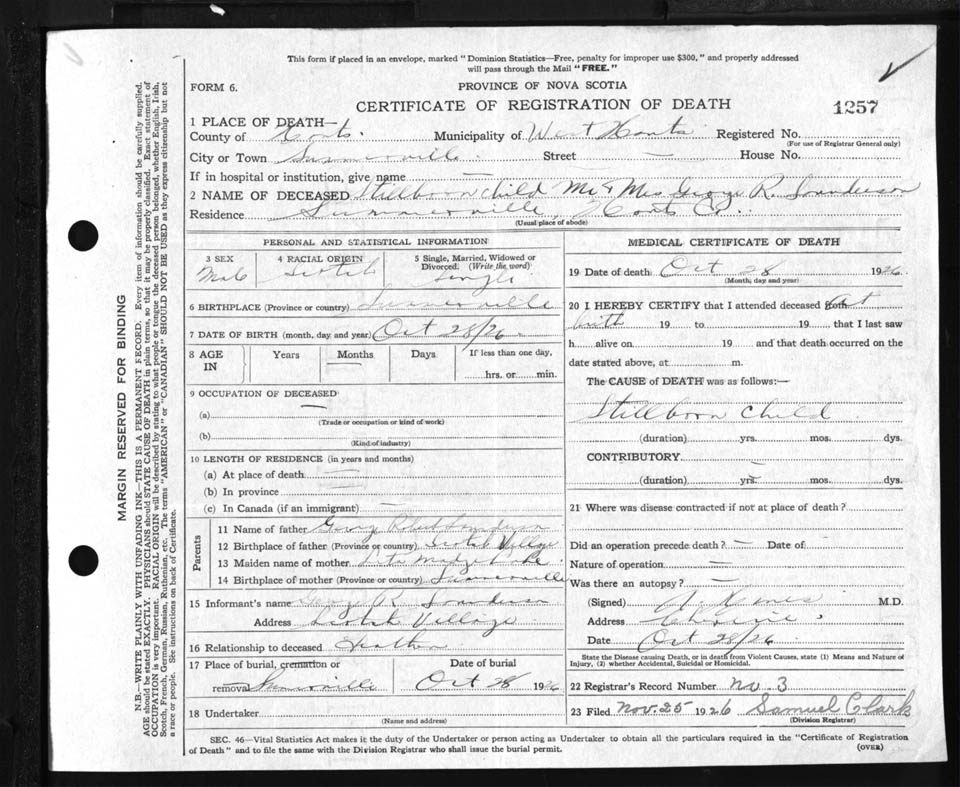 This form if placed in an envelope, marked " Dominion Statistics—Free, penalty for improper use $300," and properly addressed
will pass through the Mail "FREE."
FORM 6.
PROVINCE OF NOVA SCOTIA
CERTIFICATE OF REGISTRATION OF DEATH
1257
1 PLACE OF DEATH—
County of Hants. Municipality of West Hants Registered No.
(For use of Registrar General only)
City or Town Summerville Street — House No.
If in hospital or institution, give name —
2 NAME OF DECEASED Stillborn child Mr & Mrs George R. Sanderson
Residence Summerville, Hants Co.
(Usual place of abode)
PERSONAL AND STATISTICAL INFORMATION
3 SEX 4 RACIAL ORIGIN 5 Single, Married, Widowed or
Divorced. (Write the word)
Male Scotch Single
6 BIRTHPLACE (Province or country) Summerville
7 DATE OF BIRTH (month, day and year) Oct 28/26
8 AGE IN Years Months Days If less than one day,
hrs. or min.
9 OCCUPATION OF DECEASED
(a) —
(Trade or occupation or kind of work)
(b)
(Kind of industry)
10 LENGTH OF RESIDENCE (in years and months)
(a) At place of death —
(b) In province —
(c) In Canada (if an immigrant) —
Parents
11 Name of father George Sanderson
12 Birthplace of father (Province or country) Scotch Village
13 Maiden name of mother
14 Birthplace of mother (Province or country) Summerville
15 Informant's name George R. Sanderson
Address Scotch Village
16 Relationship to deceased Father
17 Place of burial, cremation or
removal Summerville
Date of burial
Oct 28 1926
18 Undertaker
(Name and address)
MEDICAL CERTIFICATE OF DEATH
19 Date of death Oct 28 1926
(Month, day and year)
20 I HEREBY CERTIFY that I attended deceased from At
birth 19 to 19 that I last saw
h alive on 19 and that death occurred on the
date stated above, at m.
The CAUSE of DEATH was as follows:—
Stillborn child
(duration) yrs. mos. dys.
CONTRIBUTORY
(duration) yrs. mos. dys.
21 Where was disease contracted if not at place of death?
—
Did an operation precede death? — Date of
Nature of operation —
Was there an autopsy? —
(Signed) M.D.
Address
Date Oct 28/26
State the Disease causing Death, or in death from Violent Causes, state (1) Means and Nature of
Injury, (2) whether Accidental, Suicidal or Homicidal.
22 Registrar's Record Number No. 3
23 Filed Nov. 25 1926 Samuel Clark
(Division Registrar)
SEC. 46—Vital Statistics Act makes it the duty of the Undertaker or person acting as Undertaker to obtain all the particulars required in the "Certificate of Registration
of Death" and to file the same with the Division Registrar who shall issue the burial permit.
(OVER)
MARGIN RESERVED FOR BINDING
N.B.—WRITE PLAINLY WITH UNFADING INK—THIS IS A PERMANENT RECORD. Every item of information should be carefully supplied.
AGE should be stated EXACTLY. PHYSICIANS should STATE CAUSE OF DEATH in plain terms, so that it may be properly classified. Exact statement of
OCCUPATION is very important. RACIAL ORIGIN will be described by stating to what people or tongue the deceased person belonged, whether English, Irish,
Scotch, French, German, Russian, Ruthenian, etc. The terms "AMERICAN" or "CANADIAN" SHOULD NOT BE USED as they express citizenship but not
a race or people. See instructions on back of Certificate.